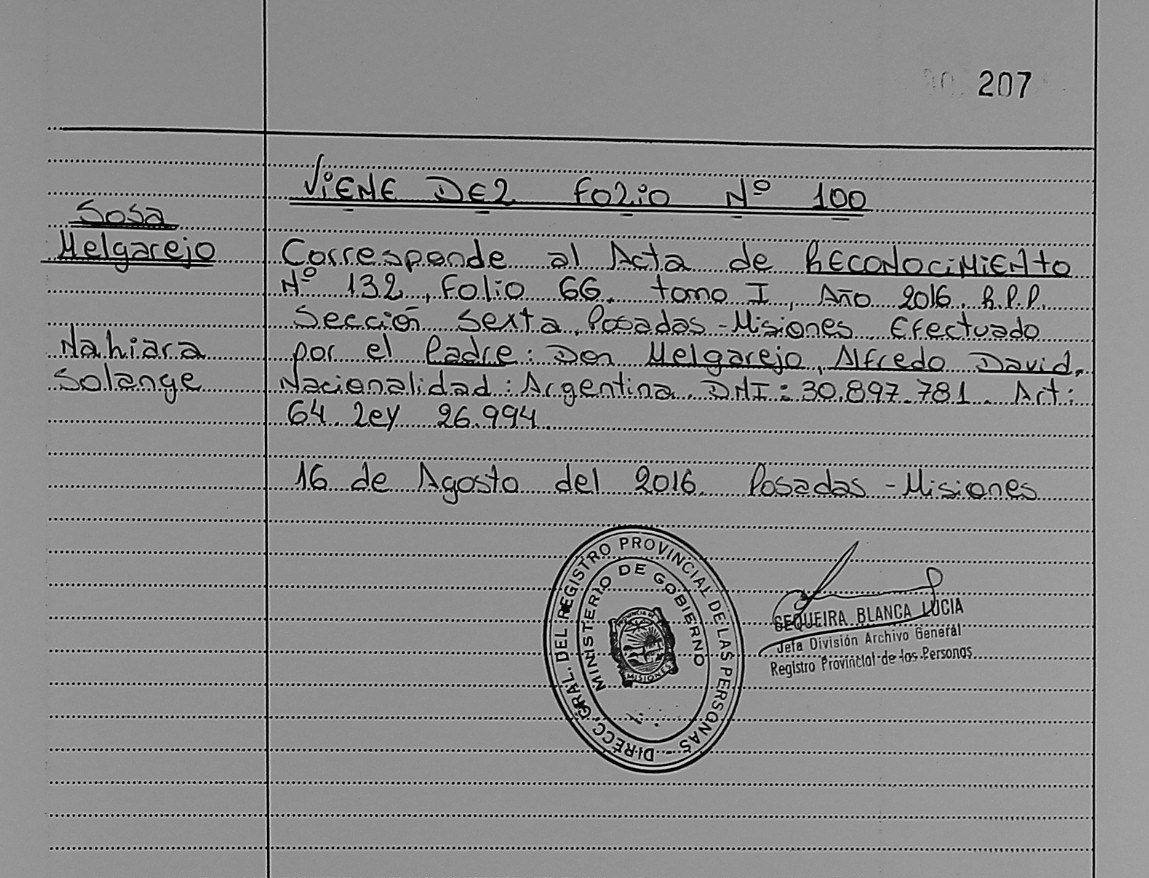 207
VIENE DEL FOLIO Nº 100
Sosa
Melgarejo
Nahiara
Solange
Corresponde al Acta de RECONOCIMIENTO
Nº 132, Folio 66, tomo I, Año 2016. R.P.P.
Sección Sexta, Posadas-Misiones. Efectuado
por el Padre: Don Melgarejo, Alfredo David,
Nacionalidad: Argentina. DNI: 30.897.781. Art:
64 Ley 26.994.
16 de Agosto del 2016. Posadas - Misiones
DIRECC. GRAL. DEL REGISTRO PROVINCIAL DE LAS PERSONAS
MINISTERIO DE GOBIERNO
MISIONES
SEQUEIRA BLANCA LUCIA
Jefa División Archivo General
Registro Provincial de las Personas